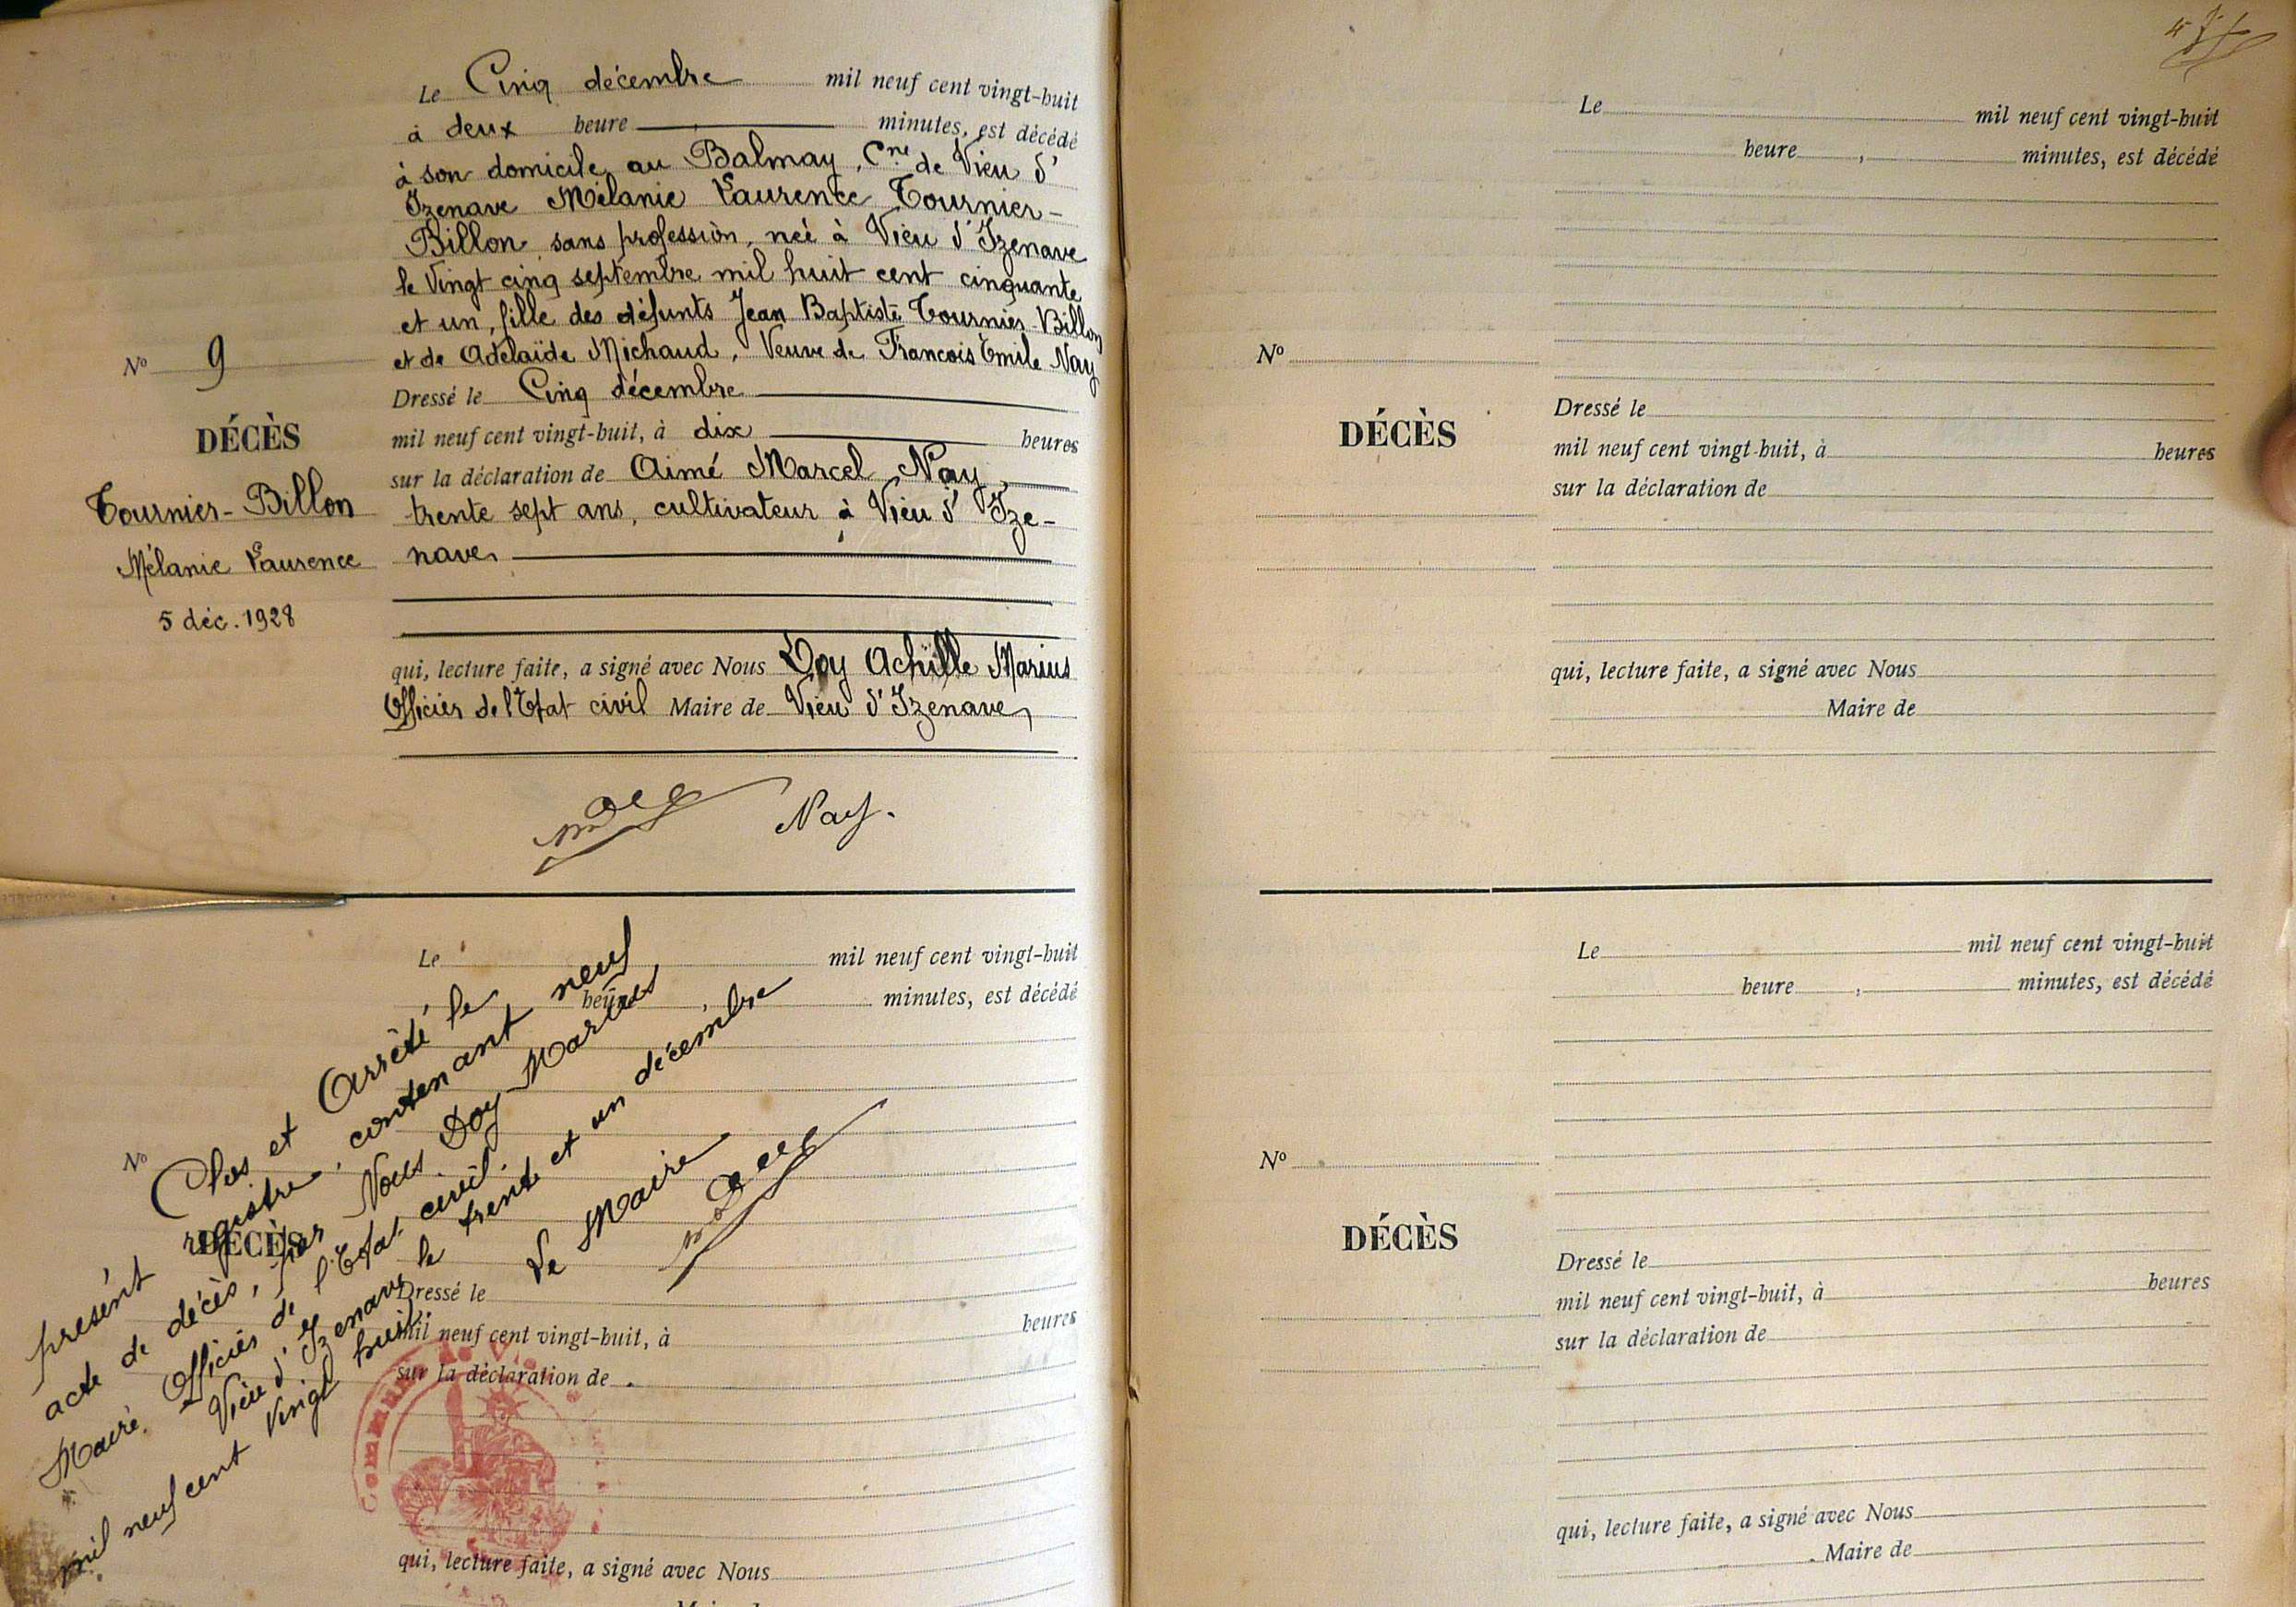 Le Cinq décembre mil neuf cent vingt-huit
à deux heure , minutes, est décédé
à son domicile au Balmay, Cne de Vieu d'
Izenave Mélanie Laurence Tournier-
Billon, sans profession, neé à Vieu d'Izenave
le Vingt cinq septembre mil huit cent cinquante
et un, fille des défunts Jean Baptiste Tournier-Billon
et de Adelaïde Michaud, Veuve de Francois Emile Nay
Dressé le Cinq décembre
mil neuf cent vingt-huit, à dix heures
sur la déclaration de Aimé Marcel Nay,
trente sept ans, cultivateur à Vieu d'Ize-
nave,
qui, lecture faite, a signé avec Nous Doy Achille Marius
Officier de l'Etat civil Maire de Vieu d'Izenave,
Nay.
No 9
DÉCÈS
Tournier-Billon
Mélanie Laurence
5 déc. 1928
Le mil neuf cent vingt-huit
heure , minutes, est décédé
No
DÉCÈS
Dressé le
mil neuf cent vingt-huit, à heures
sur la déclaration de
qui, lecture faite, a signé avec Nous
Maire de
Clos et Arrêté le
présent registre, contenant neuf
acte de décès, par Nous Doy Marius
Maire, Officier de l'Etat civil
Vieu d'Izenave le trente et un décembre
mil neuf cent Vingt huit.
Le Maire
Commune
Le mil neuf cent vingt-huit
heure , minutes, est décédé
No
DÉCÈS
Dressé le
mil neuf cent vingt-huit, à heures
sur la déclaration de
qui, lecture faite, a signé avec Nous
Maire de
Le mil neuf cent vingt-huit
heure , minutes, est décédé
No
DÉCÈS
Dressé le
mil neuf cent vingt-huit, à heures
sur la déclaration de
qui, lecture faite, a signé avec Nous
Maire de